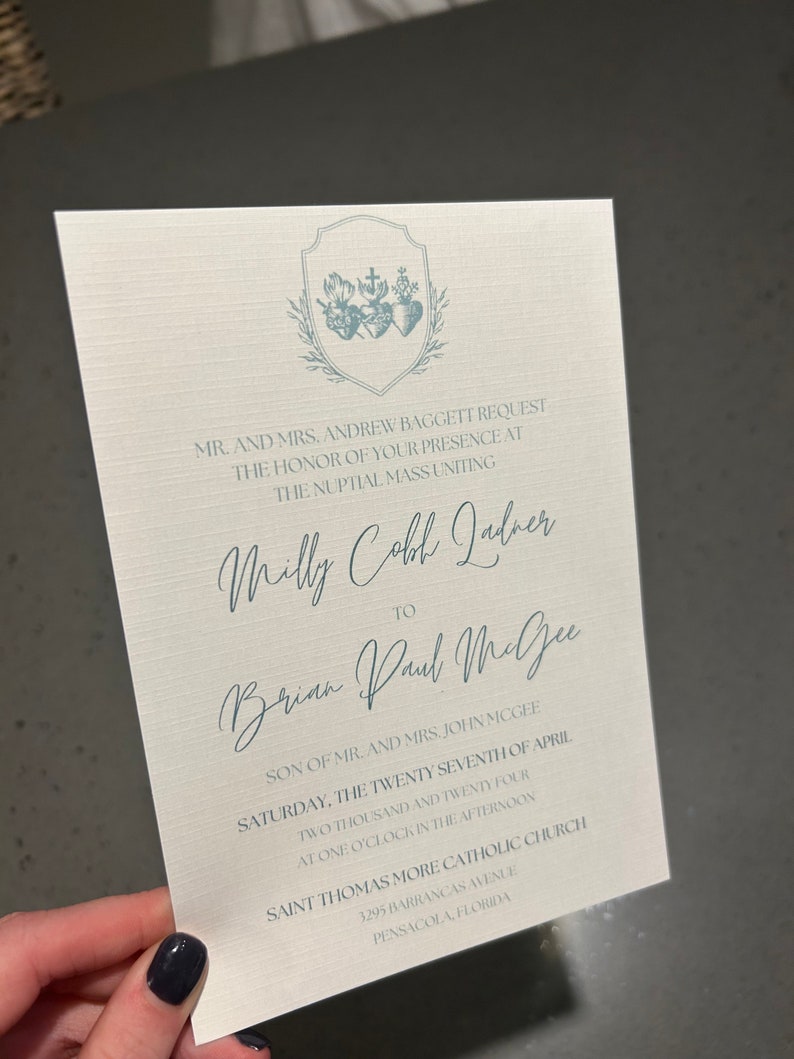 MR. AND MRS. ANDREW BAGGETT REQUEST
THE HONOR OF YOUR PRESENCE AT
THE NUPTIAL MASS UNITING
Milly Cobb Ladner
TO
Brian Paul McGee
SON OF MR. AND MRS. JOHN MCGEE
SATURDAY, THE TWENTY SEVENTH OF APRIL
TWO THOUSAND AND TWENTY FOUR
AT ONE O'CLOCK IN THE AFTERNOON
SAINT THOMAS MORE CATHOLIC CHURCH
3295 BARRANCAS AVENUE
PENSACOLA, FLORIDA